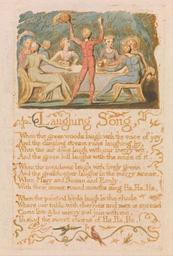 Laughing Song,
When the green woods laugh with the voice of joy
And the dimpling stream runs laughing by,
When the air does laugh with our merry wit,
And the green hill laughs with the noise of it.
When the meadows laugh with lively green
And the grasshopper laughs in the merry scene,
When Mary and Susan and Emily,
With their sweet round mouths sing Ha, Ha, He.
When the painted birds laugh in the shade
Where our table with cherries and nuts is spread
Come live & be merry and join with me,
To sing the sweet chorus of Ha, Ha, He.